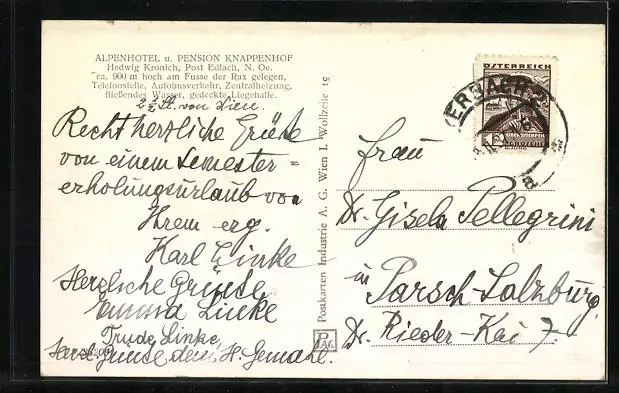 ALPENHOTEL u. PENSION KNAPPENHOF
Hedwig Kronich, Post Edlach, N. Oe.
ca. 900 m hoch am Fusse der Rax gelegen,
Telefonstelle, Autobusverkehr, Zentralheizung,
fließendes Wasser, gedeckte Liegehalle.
2½ St. von Wien.
Recht herzliche Grüsse
von einem Semester=
erholungsurlaub von
Ihrem erg.
Karl Linke
Herzliche Grüsse
Emma Linke
Trude Linke
Herzl. Grüsse dem H. Gemahl.
Postkarten Industrie A. G. Wien I. Wollzeile 19
P
I.AG.
ÖSTERREICH
GROSCHEN
Frau
Dr. Gisela Pellegrini
in Parsch-Salzburg
Dr. Rieder-Kai 7.